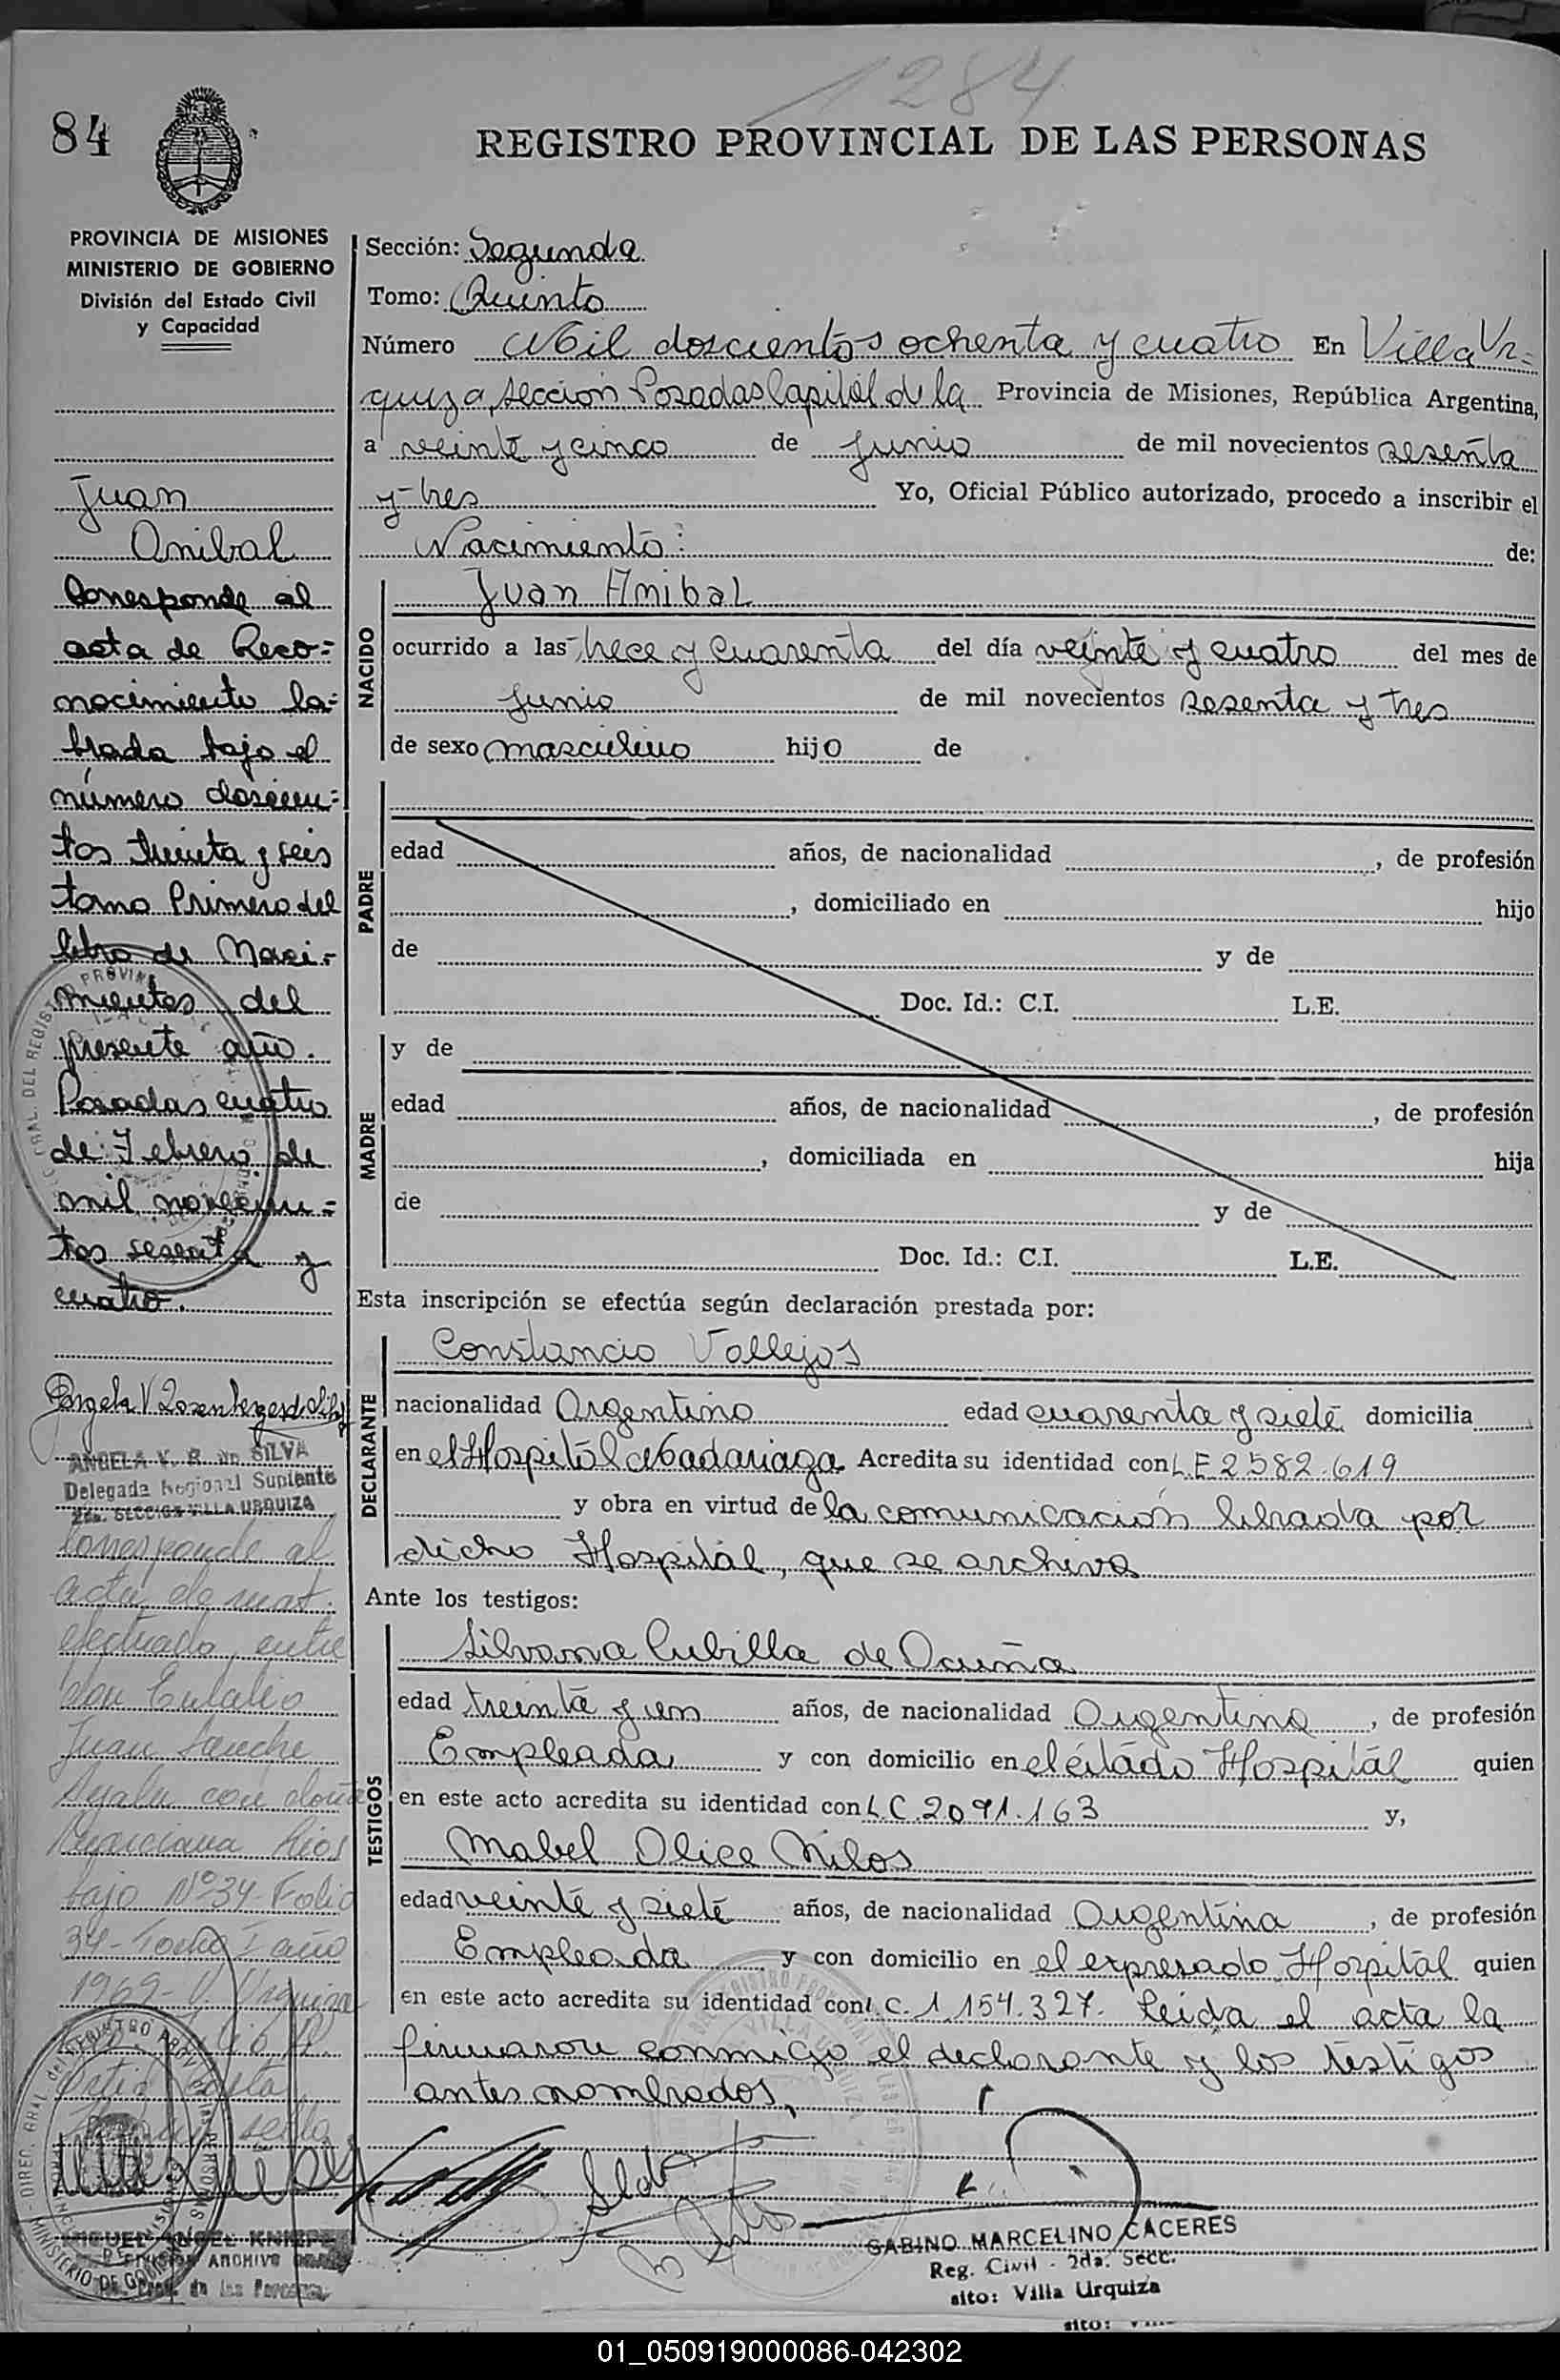 1284
84
REGISTRO PROVINCIAL DE LAS PERSONAS
PROVINCIA DE MISIONES
MINISTERIO DE GOBIERNO
División del Estado Civil
y Capacidad
Juan
Anibal
Corresponde al
acta de Reco=
nocimiento la=
brada bajo el
número doscien=
tos treinta y seis
tomo Primero del
libro de Naci-
mientos del
presente año.
Posadas cuatro
de Febrero de
mil novecien=
tos sesenta y
cuatro.
ANGELA V. R. de SILVA
Delegada Regional Suplente
2da. SECCION VILLA URQUIZA
Corresponde al
acta de mat.
efectuado entre
Don Eulalio
Juan Sanche
Ayala con doña
Marciana Rios
bajo Nº 34- Folio
34- Tomo I año
1969- V. Urquiza
Sección: Segunda
Tomo: Quinto
Número Mil doscientos ochenta y cuatro En Villa Ur=
quiza, sección Posadas, Capital de la Provincia de Misiones, República Argentina,
a veinte y cinco de junio de mil novecientos sesenta
y tres Yo, Oficial Público autorizado, procedo a inscribir el
Nacimiento: de:
NACIDO
Juan Anibal
ocurrido a las trece y cuarenta del día veinte y cuatro del mes de
junio de mil novecientos sesenta y tres
de sexo masculino hijo de
PADRE
edad años, de nacionalidad , de profesión
, domiciliado en hijo
de y de
Doc. Id.: C.I. L.E.
MADRE
y de
edad años, de nacionalidad , de profesión
, domiciliada en hija
de y de
Doc. Id.: C.I. L.E.
Esta inscripción se efectúa según declaración prestada por:
DECLARANTE
Constancio Vallejos
nacionalidad Argentino edad cuarenta y siete domicilia
en el Hospital Madariaga Acredita su identidad con L.E 2582.619
y obra en virtud de la comunicación librada por
dicho Hospital, que se archiva
Ante los testigos:
TESTIGOS
Silvana Cubilla de Acuña
edad treinta y un años, de nacionalidad Argentina, de profesión
Empleada y con domicilio en el citado Hospital quien
en este acto acredita su identidad con L.C.2091.163 y,
Mabel Olice Milos
edad veinte y siete años, de nacionalidad Argentina, de profesión
Empleada y con domicilio en el expresado Hospital quien
en este acto acredita su identidad con L.C. 1.154.327. Leida el acta la
firmaron conmigo el declarante y los testigos
antes nombrados,
MIGUEL ANGEL
DIVISION ARCHIVO
Prov. de las Personas
GABINO MARCELINO CACERES
Reg. Civil - 2da. Secc.
sito: Villa Urquiza
sito:
01_050919000086-042302